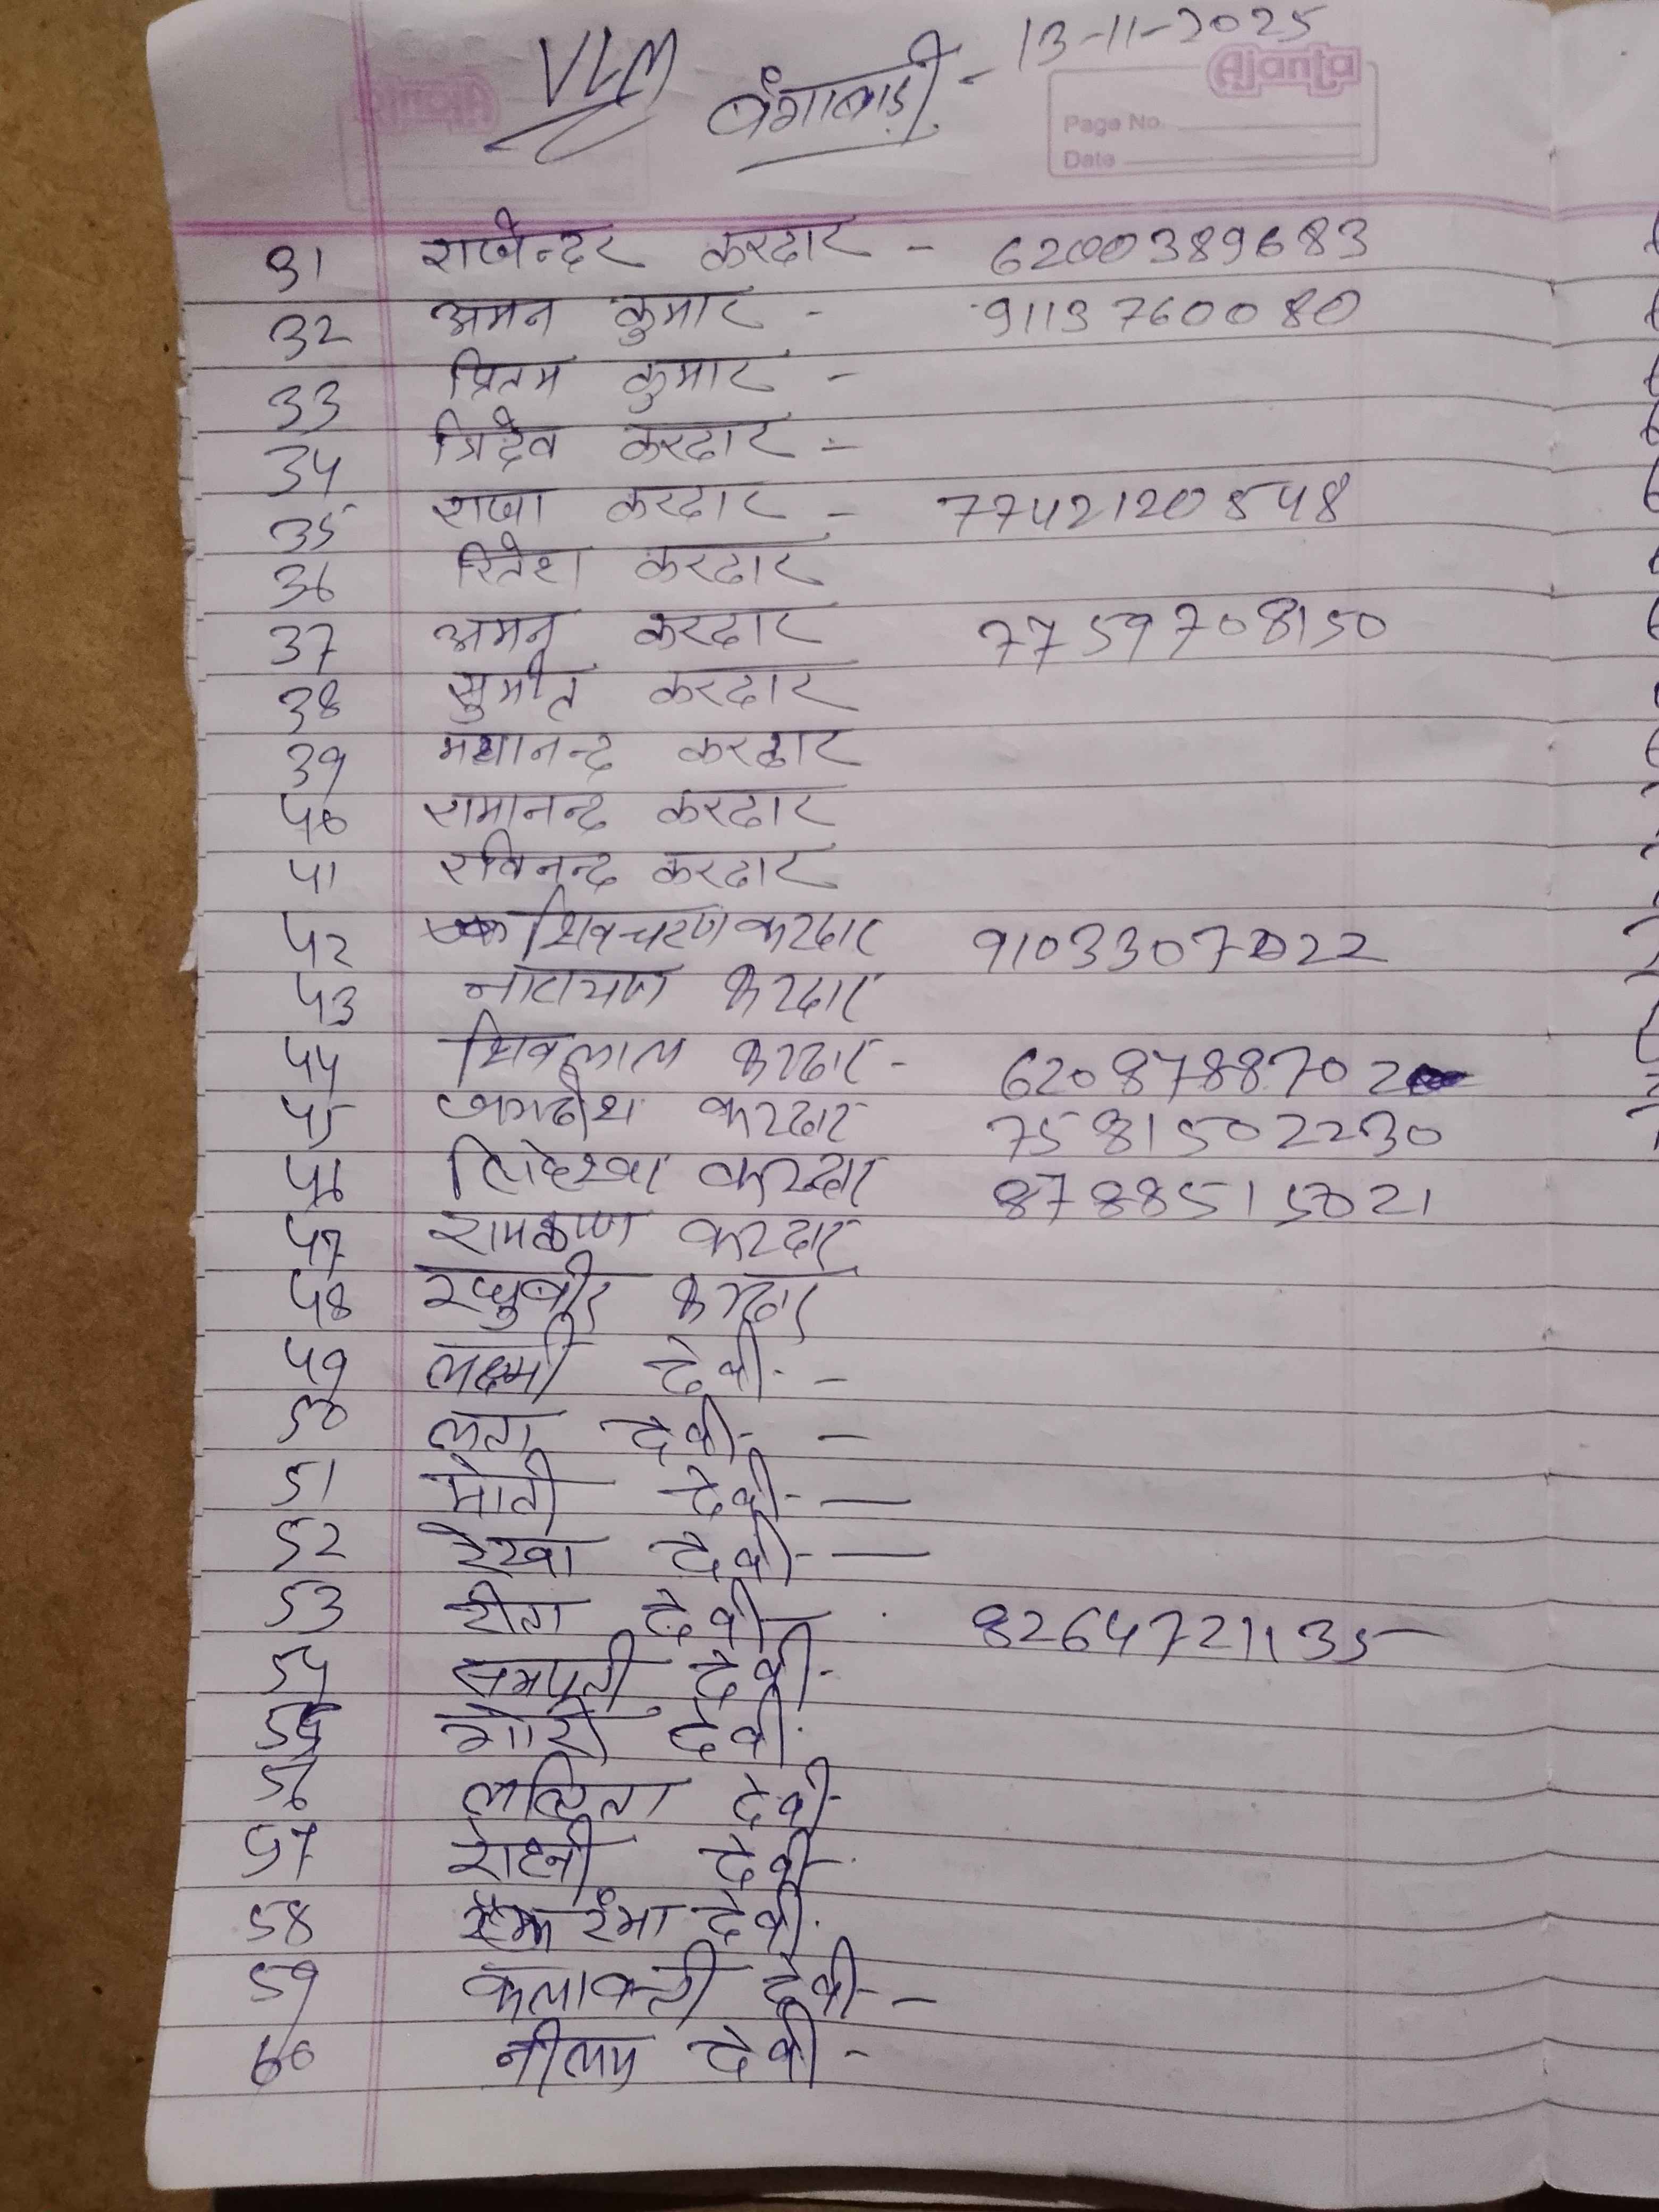 VLM बंगाबाड़ी - 13-11-2025
Ajanta
Page No.
Date
31 राजेन्दर करदार - 6200389683
32 अमन कुमार - 9113760080
33 प्रितम कुमार -
34 त्रिदेव करदार -
35 राजा करदार - 77421208548
36 रितेश करदार
37 अमन करदार 7759708150
38 सुमीत करदार
39 करदार
40 रामानन्द करदार
41 रविनन्द करदार
42 शिवचरण करदार 9103307022
43 नारायण करदार
44 शिवलाल करदार - 6208788702
45 जगदीश करदार 7581502230
46 करदार 8788515021
47 करदार
48 रघुबीर करदार
49 लक्ष्मी देवी - -
50 लता देवी - -
51 मोती देवी - —
52 रेखा देवी - —
53 रीता देवी - 8264721135
54 देवी -
55 गोरी देवी
56 ललिता देवी -
57 रोहनी देवी -
58 रंभा देवी
59 कलावती देवी - -
60 नीलम देवी -